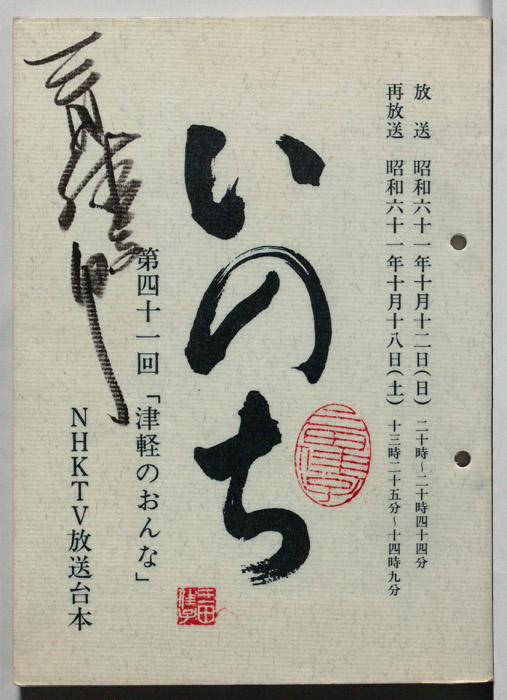 放送 昭和六十一年十月十二日(日) 二十時~二十時四十四分
再放送 昭和六十一年十月十八日(土) 十三時二十五分~十四時九分
いのち
第四十一回「津軽のおんな」
NHKTV放送台本